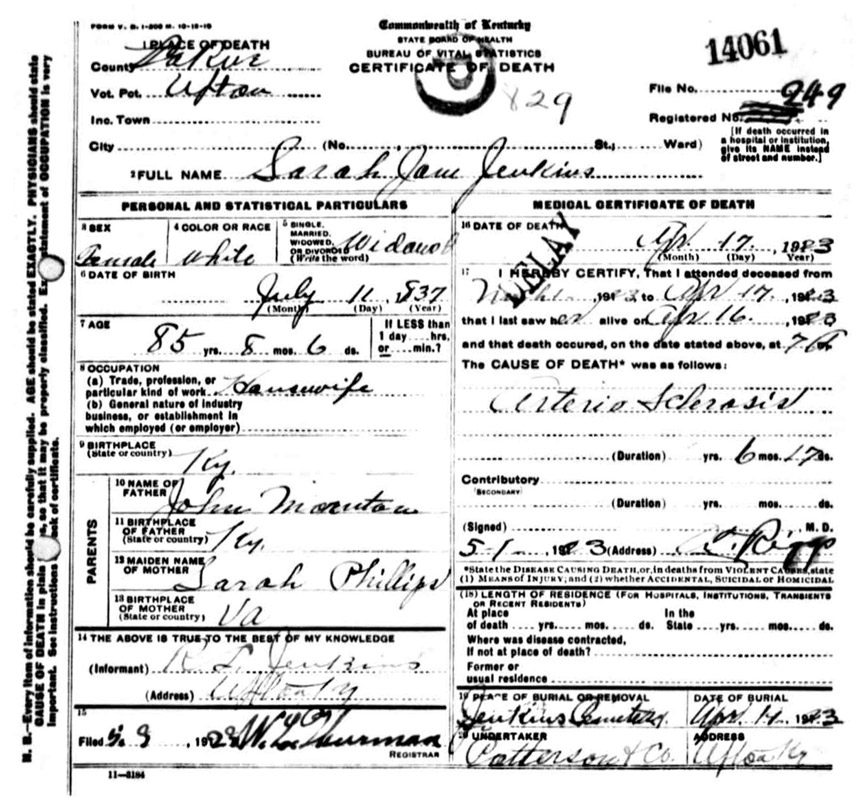 FORM V. S. 1-200 M. 10-13-10
Commonwealth of Kentucky
STATE BOARD OF HEALTH
BUREAU OF VITAL STATISTICS
CERTIFICATE OF DEATH
14061
829
1 PLACE OF DEATH
County Larue
Vot. Pct. Upton
Inc. Town
File No.
Registered No. 249
[If death occurred in a hospital or institution, give its NAME instead of street and number.]
City (No. , St.; Ward)
2 FULL NAME Sarah Jane Jenkins
PERSONAL AND STATISTICAL PARTICULARS
3 SEX Female
4 COLOR OR RACE White
5 SINGLE, MARRIED, WIDOWED, OR DIVORCED (Write the word) Widowed
6 DATE OF BIRTH
July 11, 1837
(Month) (Day) (Year)
7 AGE
85 yrs. 8 mos. 6 ds.
If LESS than 1 day....hrs. or....min.?
8 OCCUPATION
(a) Trade, profession, or particular kind of work Housewife
(b) General nature of industry business, or establishment in which employed (or employer)
9 BIRTHPLACE
(State or country) Ky.
PARENTS
10 NAME OF FATHER John
11 BIRTHPLACE OF FATHER Ky.
12 MAIDEN NAME OF MOTHER Sarah Phillips
13 BIRTHPLACE OF MOTHER (State or country) Va
14 THE ABOVE IS TRUE TO THE BEST OF MY KNOWLEDGE
(Informant) R L Jenkins
(Address) Upton Ky
15
Filed 5. 9 1923 W. L. Thurman
REGISTRAR
11-3184
MEDICAL CERTIFICATE OF DEATH
DELAY
16 DATE OF DEATH
Apr. 17, 1923
(Month) (Day) (Year)
17 I HEREBY CERTIFY, That I attended deceased from
1923 to Apr 17, 1923
that I last saw her alive on Apr 16, 1923
and that death occured, on the date stated above, at 7 A
The CAUSE OF DEATH* was as follows:
Arterio Sclerosis
(Duration) yrs. 6 mos. 17 ds.
Contributory
(SECONDARY)
(Duration) yrs. mos. ds.
(Signed) M. D.
5-1- 1923 (Address)
*State the DISEASE CAUSING DEATH, or, in deaths from VIOLENT CAUSES, state (1) MEANS OF INJURY; and (2) whether ACCIDENTAL, SUICIDAL or HOMICIDAL
(18) LENGTH OF RESIDENCE (FOR HOSPITALS, INSTITUTIONS, TRANSIENTS OR RECENT RESIDENTS)
At place of death yrs. mos. ds. In the State yrs. mos. ds.
Where was disease contracted,
If not at place of death?
Former or
usual residence
19 PLACE OF BURIAL OR REMOVAL
Jenkins Cemetery
DATE OF BURIAL
Apr 17, 1923
UNDERTAKER
Patterson & Co.
ADDRESS
Upton Ky
N. B.-Every item of information should be carefully supplied. AGE should be stated EXACTLY. PHYSICIANS should state
CAUSE OF DEATH in plain so that it may be properly classified. statement of OCCUPATION is very
important. See instructions back of certificate.